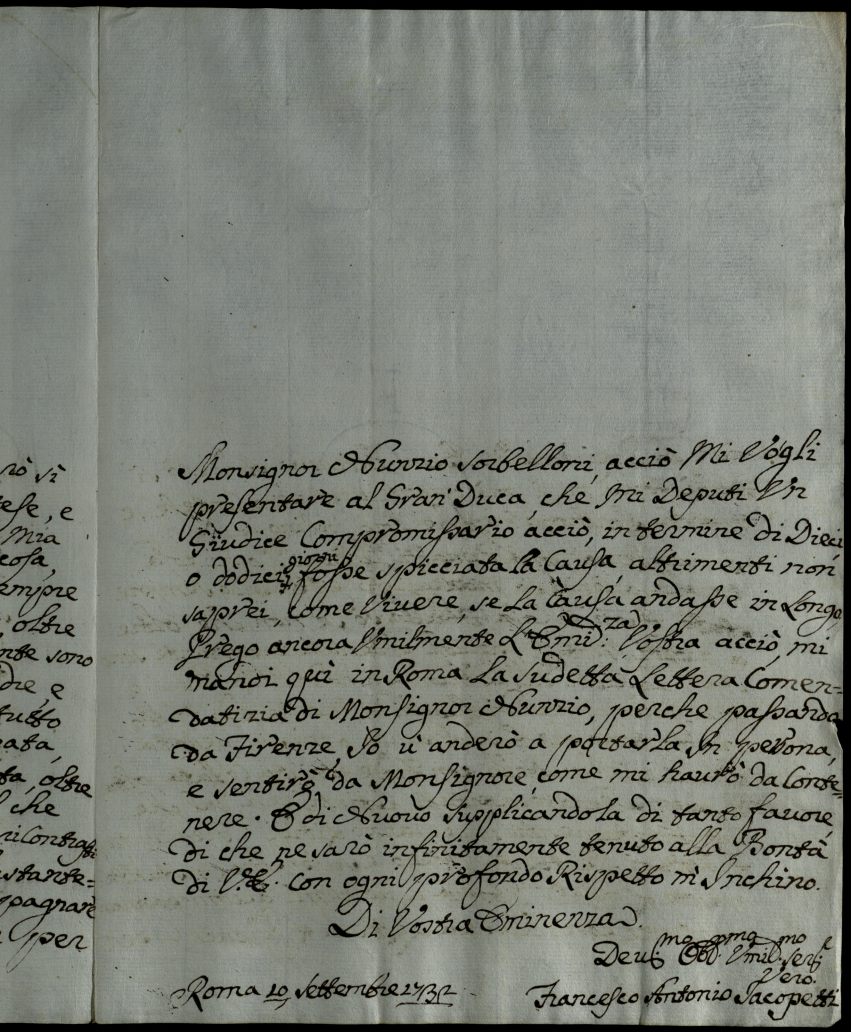 rò sì
tese, e
Mia
cosa,
empre
oltre
nte sono
dre, e
tutto
eata,
ta, oltre
che
ri Contra
stante=
pagnare
per
Monsignor Nunzio Sorbelloni, acciò Mi Vogli
presentare al Gran Duca, che Mi Deputi Un
Giudice Compromissario acciò, in termine di Dieci
o dodici giorni fosse spicciata la Causa, altrimenti non
saprei, come Vivere, se La Causa andasse in Longo
Prego ancora Umilmente L'Emid:za Vostra acciò, mi
mandi quì in Roma La Sudetta Lettera Comen=
datizia di Monsignor Nunzio, perche passando
da Firenze, Io ú anderò a portarla In persona,
e sentirò da Monsignore, come mi haurò da Conte=
nere. E di Nuovo supplicandola di tanto favore,
di che ne sarò infinitamente tenuto alla Bontà
di V.E. con ogni profondo Rispetto m'Inchino.
Di Vostra Eminenza
Deu:mo Obb:mo Umil:mo Ser:
Vero
Roma 10 Settembre 1732 Francesco Antonio Iacopetti